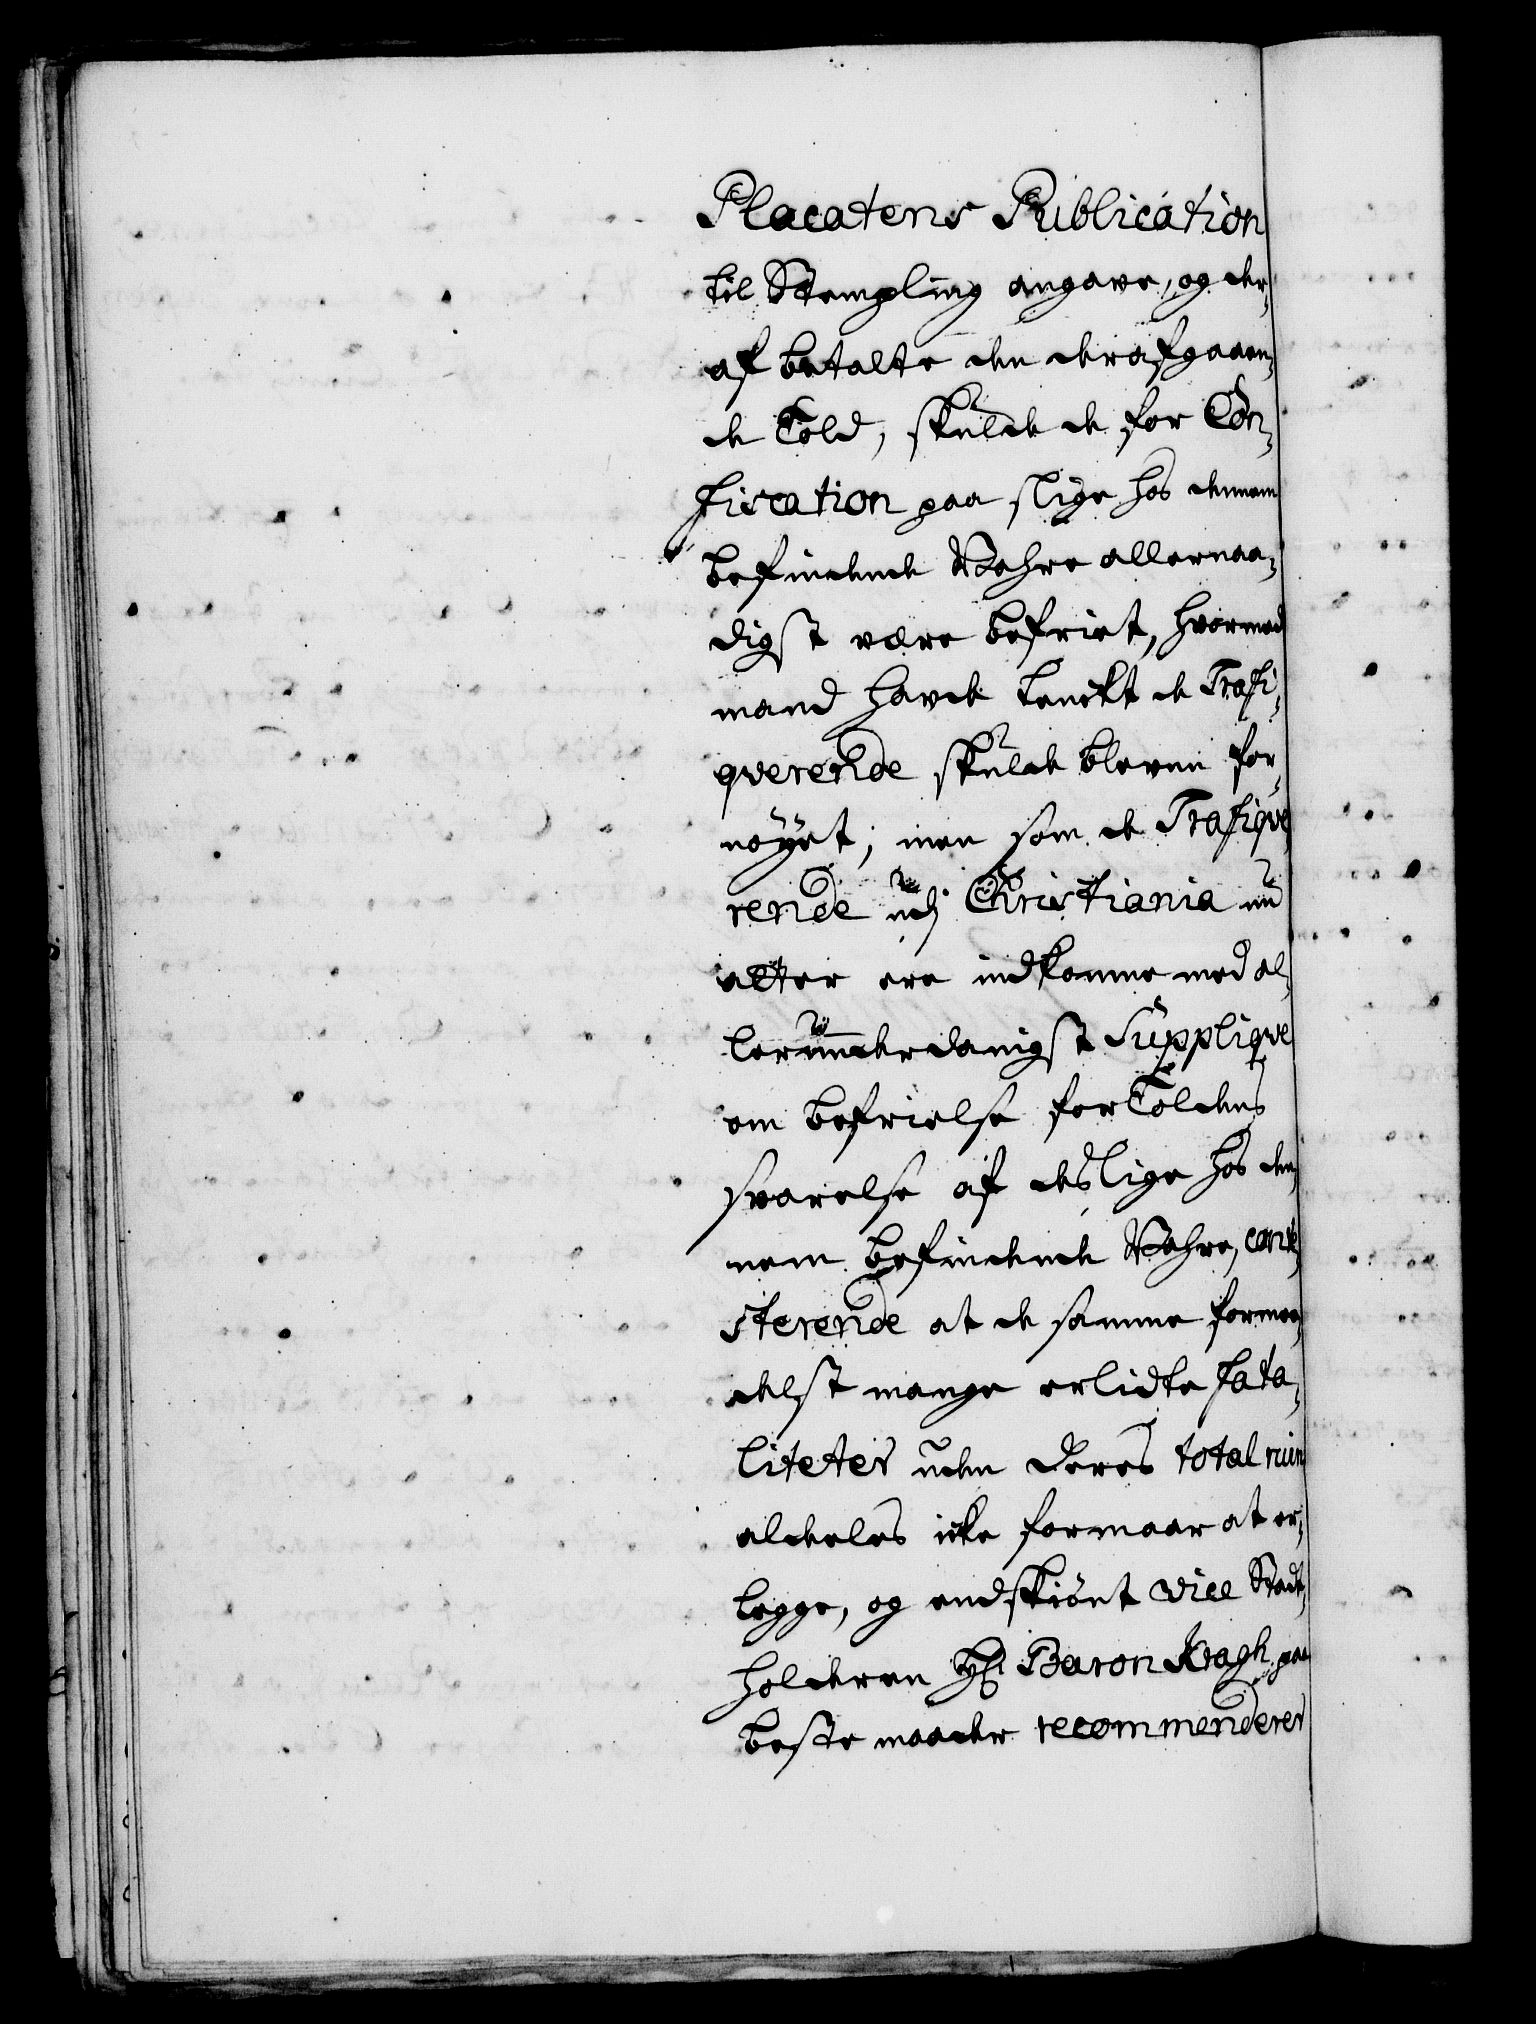 Placatens Publication
til Stempling angave, og der-
af betalte den derafgaaen-
de Told, skulde de for Con-
fiscation paa slige hos dennem
befindende Wahre allernaa-
digst være befriet, hvormed
mand havde tenckt de Trafi-
qverende skulde bleven for-
nøyet; men som de Trafiqve
rende udj Christiania nu
atter ere indkomne med al-
lerunderdanigst Supplique
om befrielse for Toldens
svarelse af deslige hos den-
nem befindende Wahre, conte-
sterende at de samme forme-
delst mange erlidte fata-
liteter uden deres total ruin
aldeles icke formaar at er-
legge, og endskiønt Vice Stadt-
holderen Hr Baron Kragh paa
beste maader recommenderer